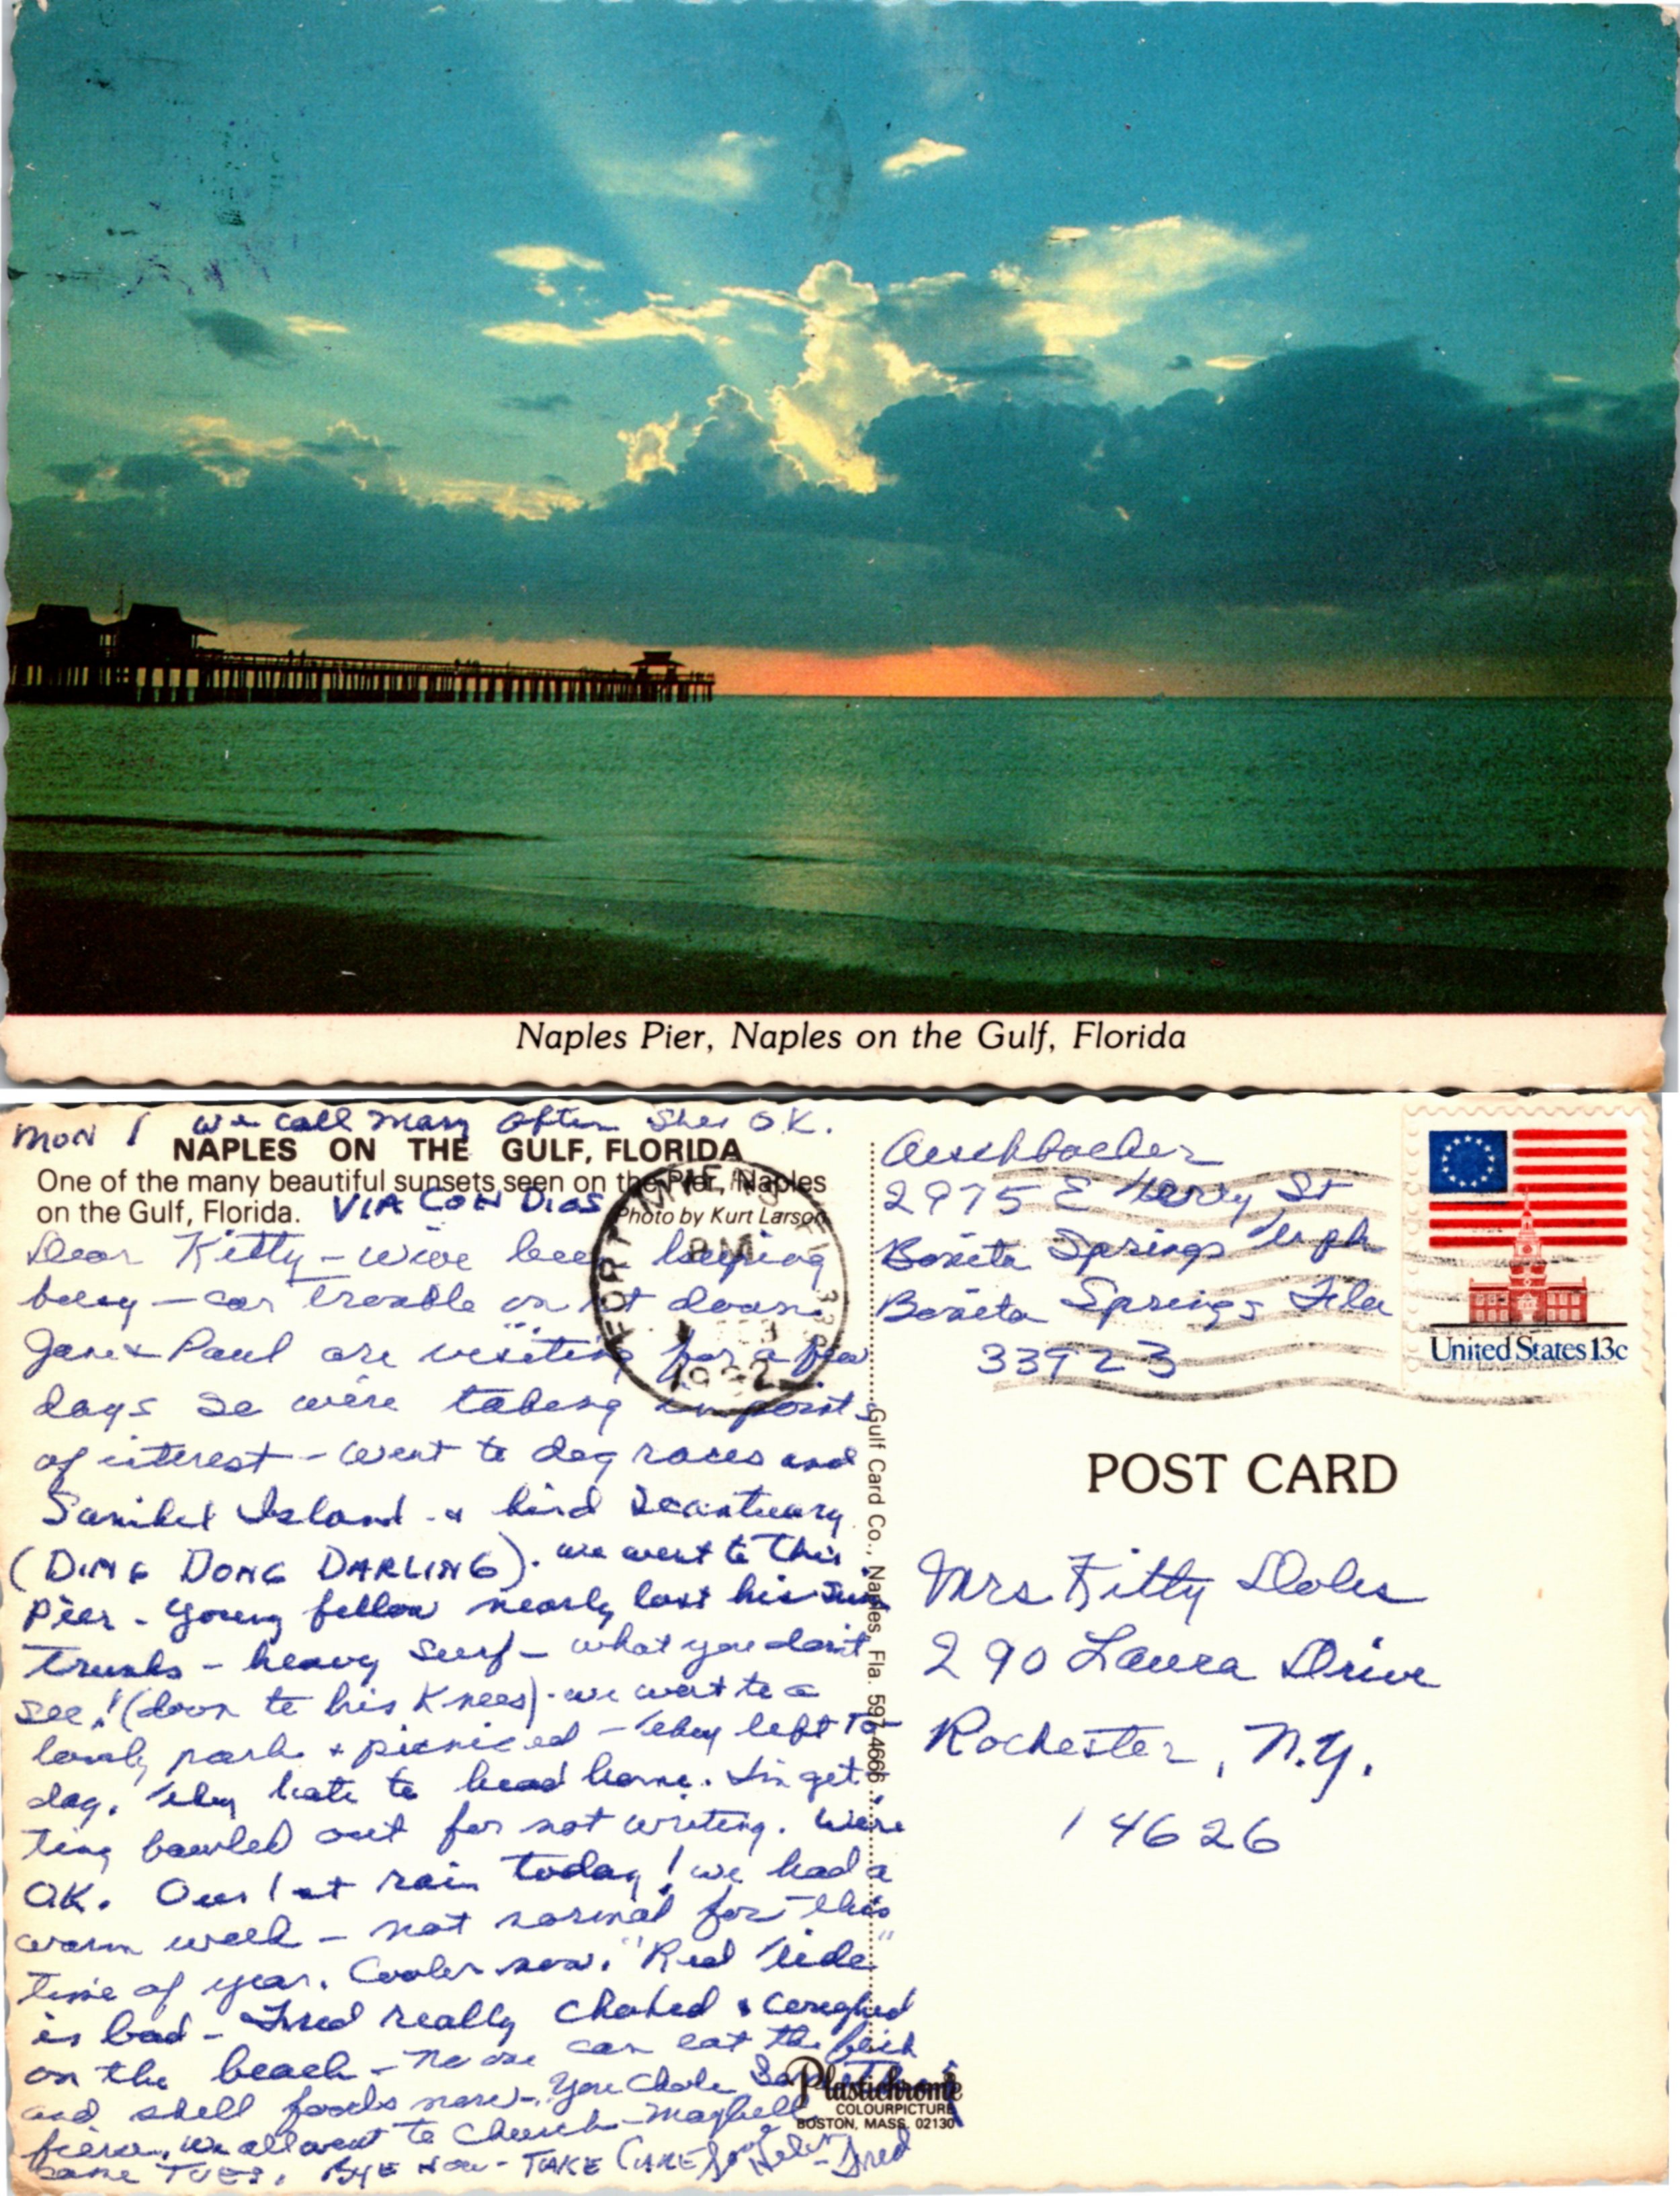 Naples Pier, Naples on the Gulf, Florida
MON 1 we call Mary often She's O.K.
NAPLES ON THE GULF, FLORIDA
One of the many beautiful sunsets seen on the Pier, Naples
on the Gulf, Florida.
VIA CON DIOS
Photo by Kurt Larson
Dear Kitty - we've been keeping
busy - car trouble on it down
Jane & Paul are visiting for a few
days so we're taking in points
of interest - went to dog races and
Sanibel Island - & bird Scantuary
(DING DONG DARLING). we went to this
Pier - Young fellow nearly lost his
trunks - heavy surf - what you don't
see! (down to his Knees). we went to a
lovely park & picniced - They left to
day. They hate to head home. I'm get
ting bawled out for not writing. We're
OK. Our 1st rain today! we had a
warm week - not normal for this
time of year. Cooler now. "Red Tide"
is bad - Fred really choked & coughed
on the beach - no one can eat the fish
and shell foods now - You choke
fierce. We all went to Church - Maybell
came TUES. BYE NOW - TAKE CARE Love Helen - Fred
FORT MYERS, FL 339
PM
FEB
1982
Aeschbacher
2975 E Terry St
Bonita Springs Trph
Bonita Springs Fla
33923
United States 13c
POST CARD
Mrs Kitty Doles
290 Laura Drive
Rochester, N.Y.
14626
Gulf Card Co., Naples, Fla. 597-4666
Plastichrome
COLOURPICTURE
BOSTON, MASS. 02130